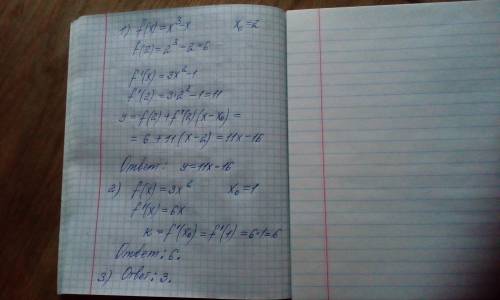 1) f(x)=x³-x x₀=2
f(2)=2³-2=6
f'(x)=3x²-1
f'(2)=3·2²-1=11
y=f(2)+f'(2)(x-x₀)=
=6+11(x-2)=11x-16
Ответ: y=11x-16
2) f(x)=3x² x₀=1
f'(x)=6x
к=f'(x₀)=f'(1)=6·1=6
Ответ: 6.
3) Ответ: 3.